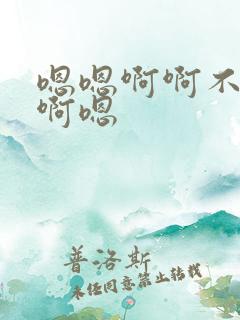 嗯嗯啊啊不
啊嗯
普洛斯
未经同意禁止转载